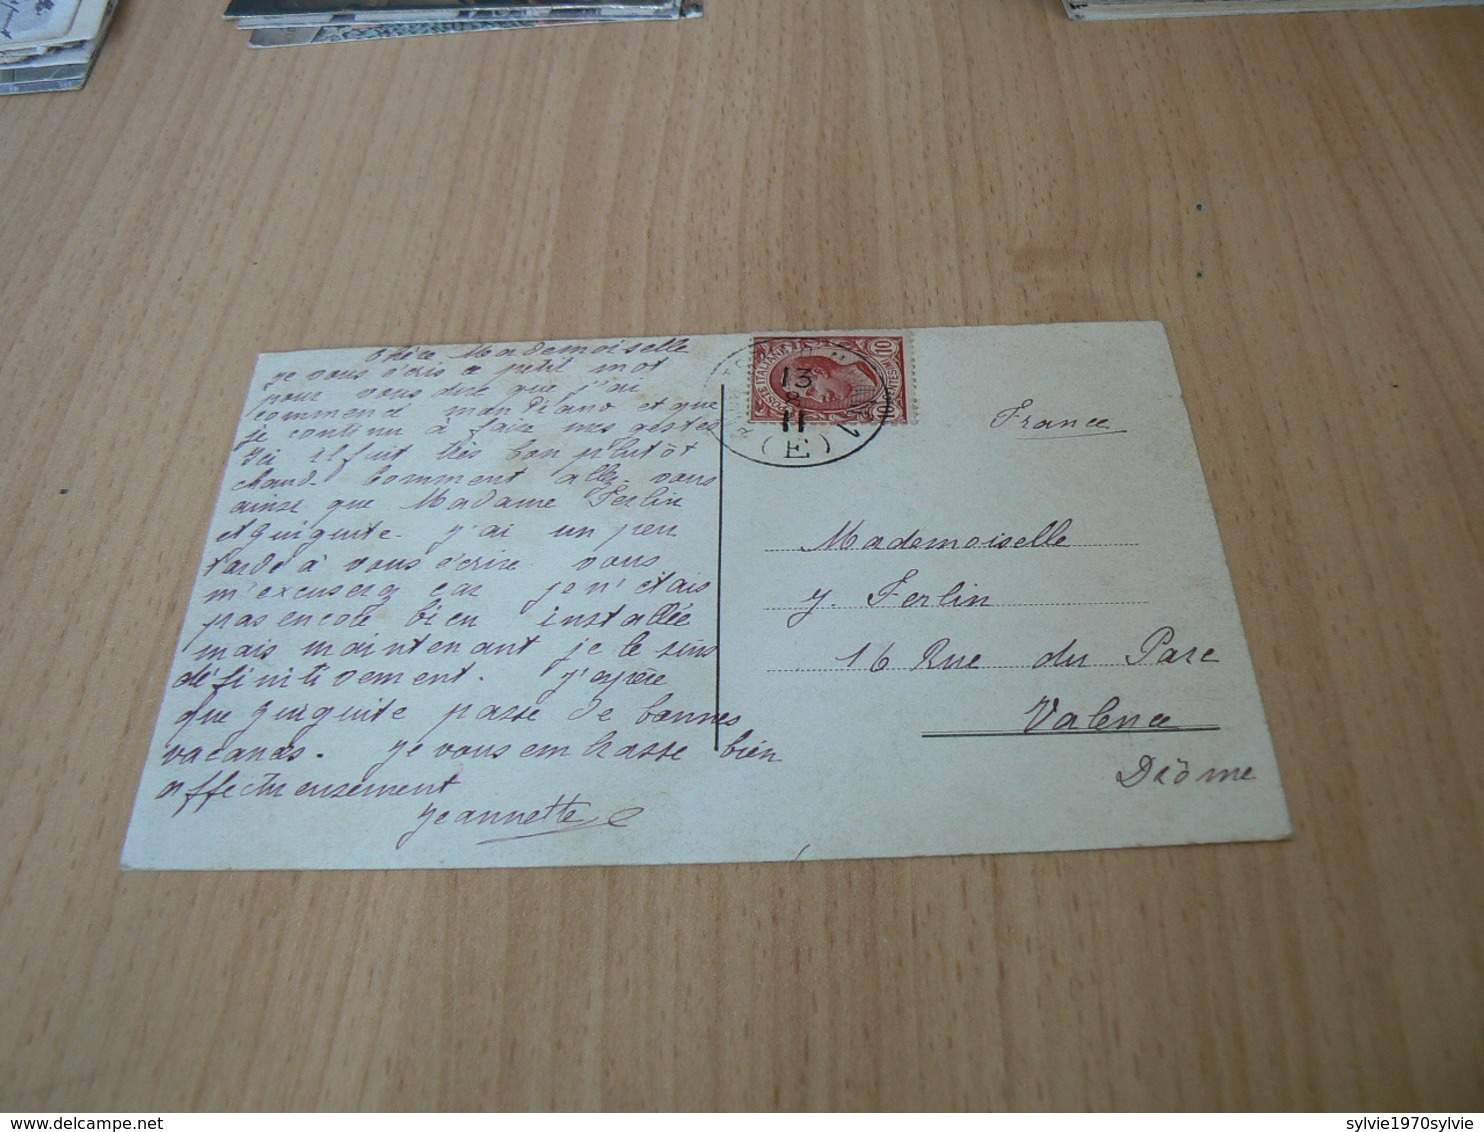 Chère Mademoiselle
je vous écris ce petit mot
pour vous dire que j'ai
commencé mon Piano et que
je continu à faire mes gestes
Ici il fait très bon plutôt
chaud. Comment allez-vous
ainsi que Madame Ferlin
et guiguite. j'ai un peu
tardé à vous écrire vous
m'excuserez car je n'étais
pas encore bien installée
mais maintenant je le suis
définitivement. J'espère
que guiguite passe de bonnes
vacances. Je vous embrasse bien
affectueusement
Jeannette
POSTE ITALIANE
10
10
13
8
11
(E)
France
Mademoiselle
y. Ferlin
16 Rue du Parc
Valence
Drôme
sylvie1970sylvie